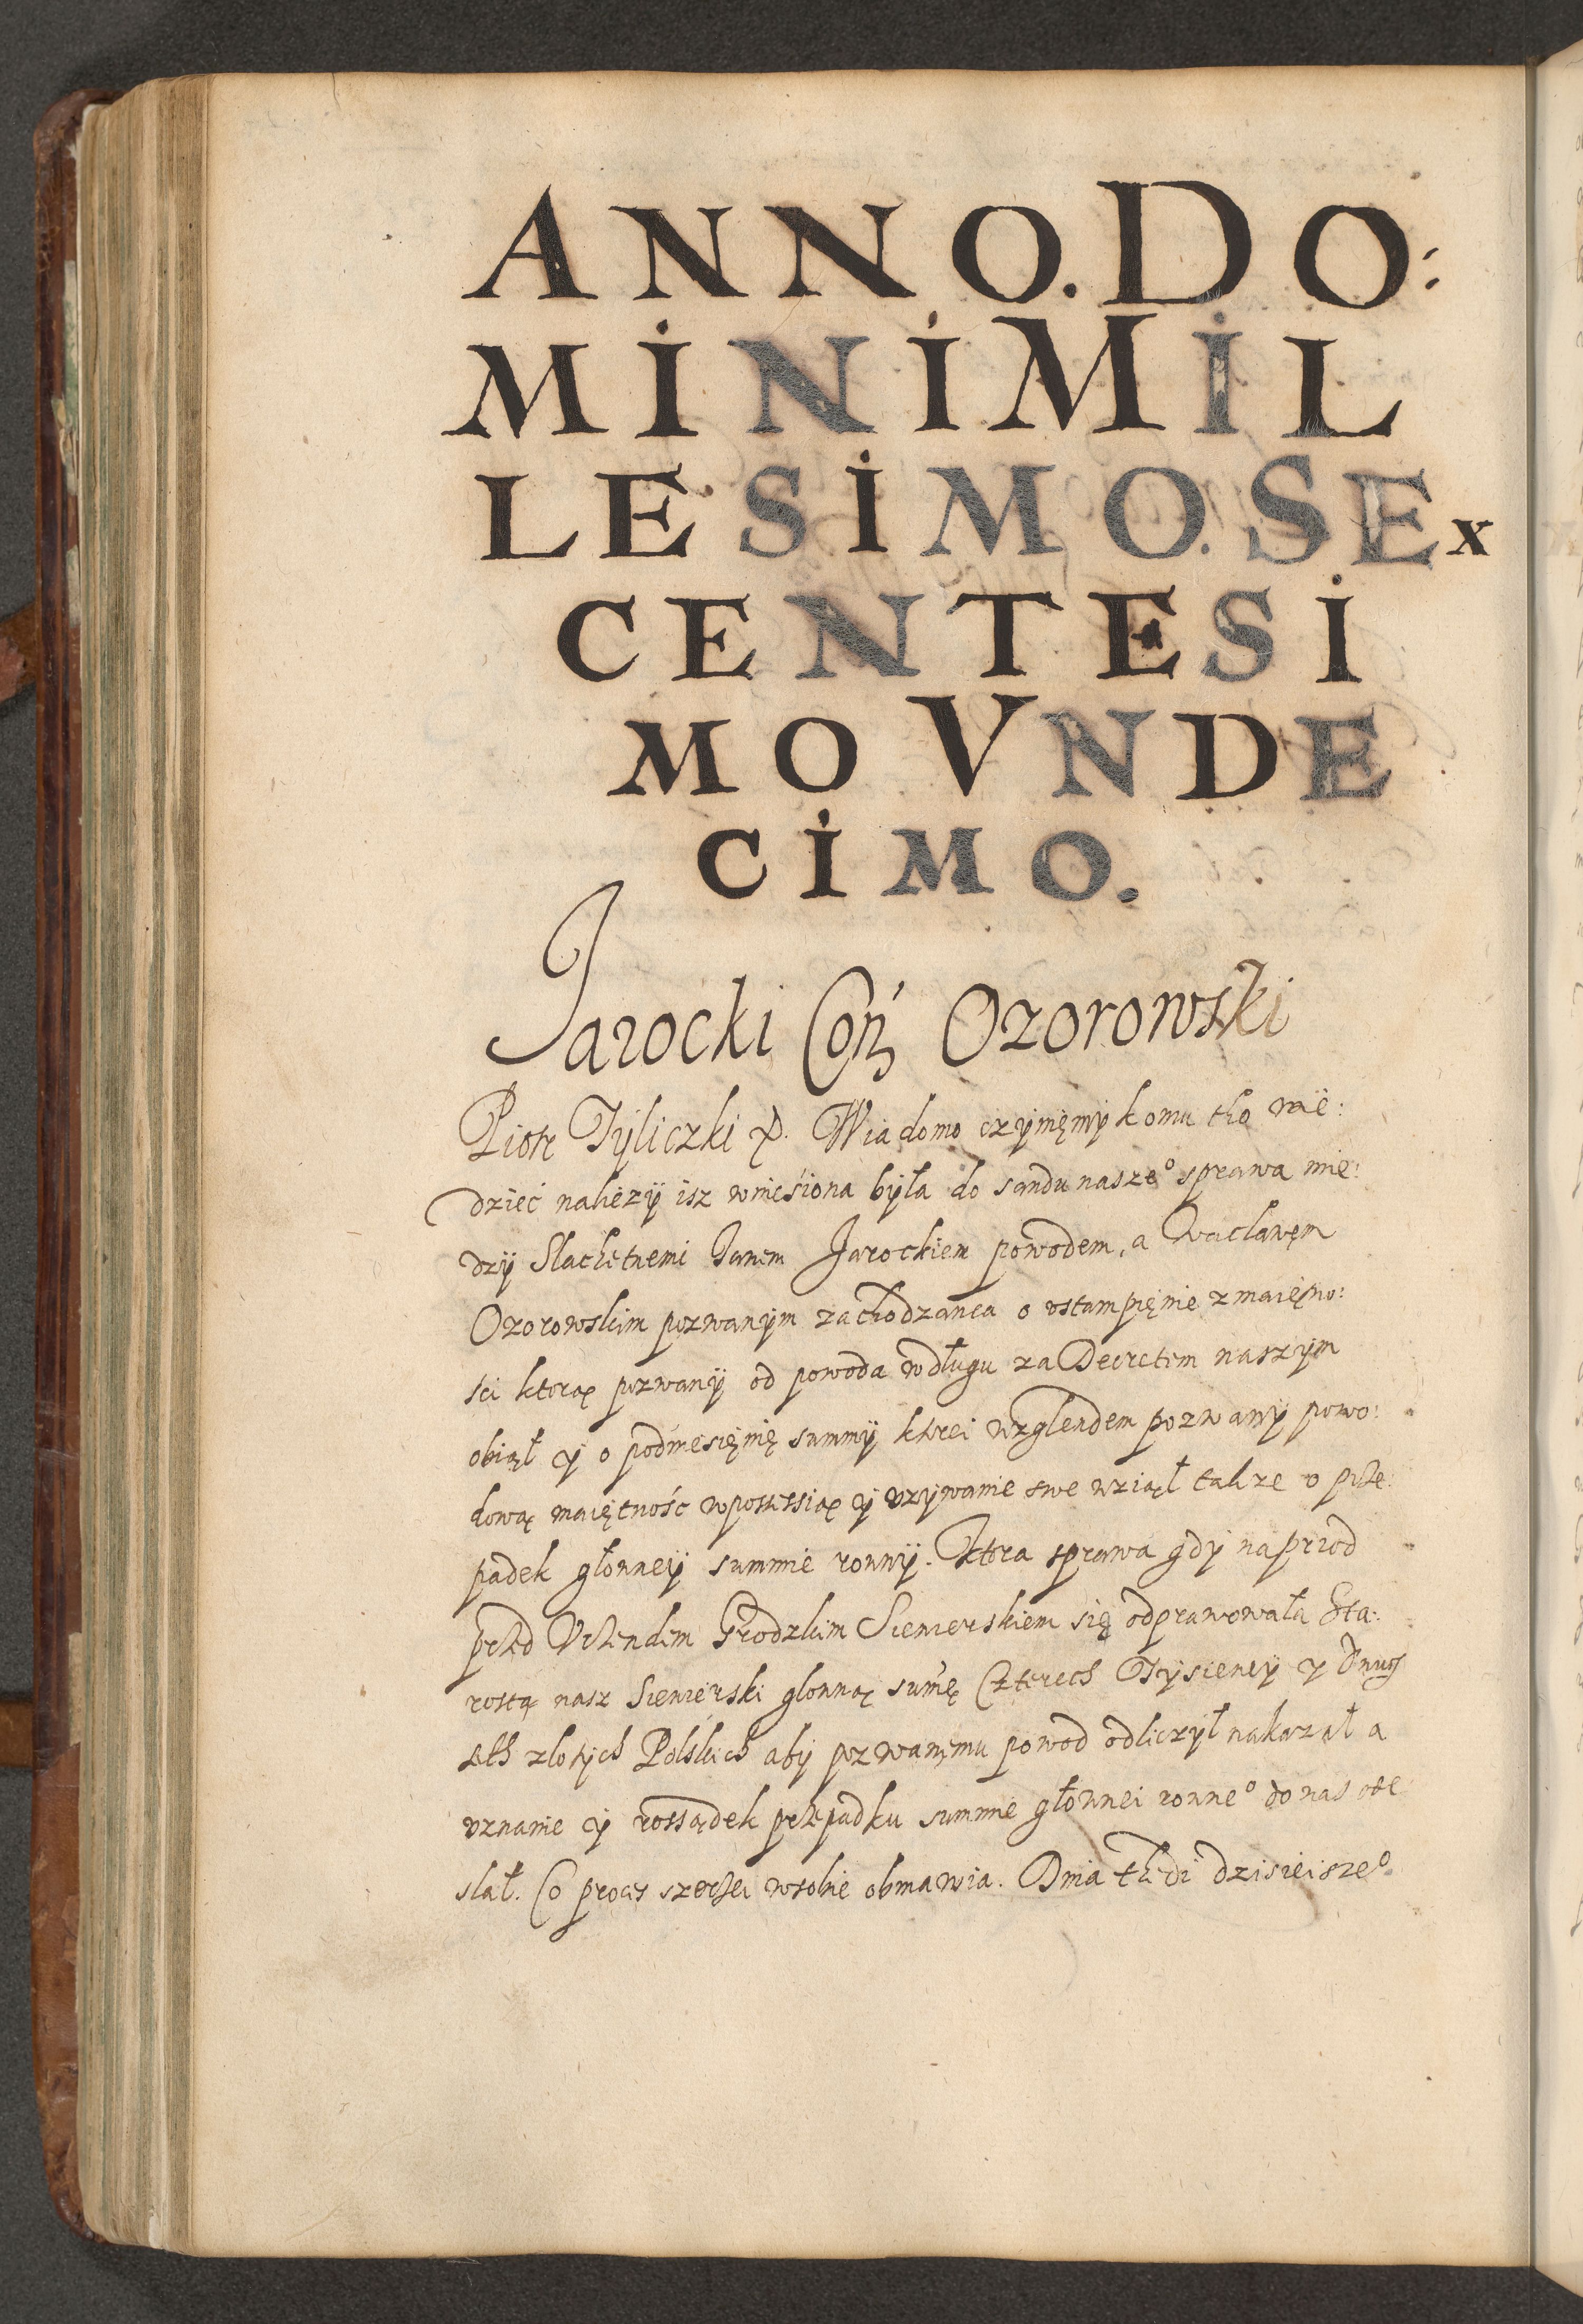 ANNO. DO:
MINI MIL
LESIMO. SEX
CENTESI
MO VNDE
CIMO.
Jarocki Con Ozorowski
Piotr Tÿliczki X. Wiadomo czÿnięmÿ komu tho wie:
dzieć nalieżÿ isz wniesiona bÿła do sandu nasze° sprawa mie:
dzÿ Slachetnemi Janem Jarockiem powodem, a Wacławęm
Ozorowskim pozwanÿm zachodzanca o vstampięnie z maięno:
sci ktorą pozwanÿ od powoda w długu za Decretem naszÿm
obiął ÿ o podniesięnię summÿ ktorei wzglendem pozwanÿ powo:
dową maiętność w possessią ÿ vzÿwanie swe wziął takze o prze
padek głownęÿ summie rownÿ. Ktora sprawa gdÿ naprzod
przed Vrzendem Grodzkim Siewierskiem się odprawowała Sta:
rosta nasz Siewierski glowną summę Czterech Tÿsiencÿ ÿ Dwuch
seth zlotÿch Polskich abÿ pozwanęmu powod odliczÿł nakazał a
vznanie ÿ rossądek przepadku summie głownei rowne° do nas ode
slał. Co proces szerzei w sobie obmawia. Dnia thedi dzisieisze°